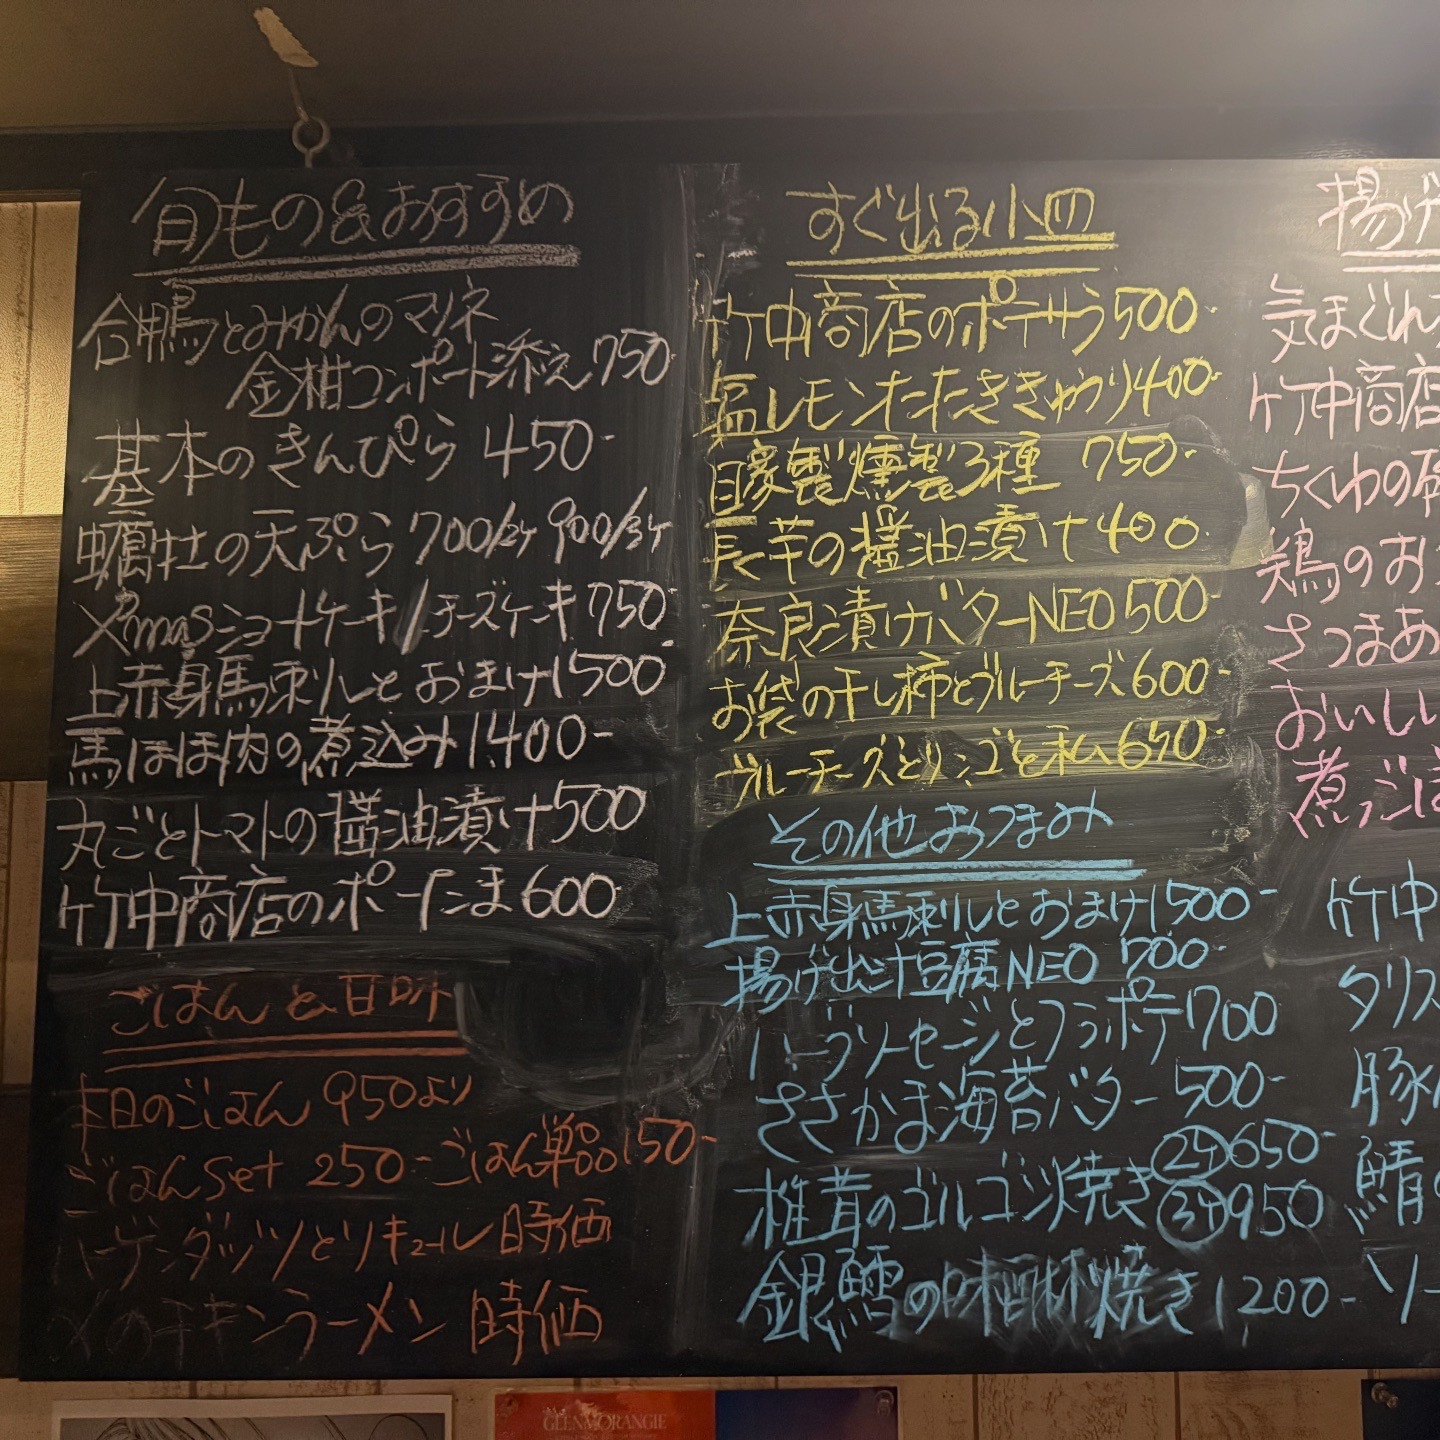 旬もの&おすすめ
合鴨とみかんのマリネ
金柑コンポート添え 750-
基本のきんぴら 450-
蠣牡の天ぷら 700/2ケ 900/3ケ
X'masショートケーキ/チーズケーキ 750-
上赤身馬刺しとおまけ 1500-
馬ほほ肉の煮込み 1.400-
丸ごとトマトの醤油漬け 500
竹中商店のポーたま 600-
ごはんと甘味
本日のごはん 950より
ごはんset 250- ごはん単品 150-
ハーゲンダッツとリキュール 時価
〆のチキンラーメン 時価
すぐ出る小皿
竹中商店のポテサラ 500-
塩レモンたたききゅうり 400-
自家製燻製3種 750-
長芋の醤油漬け 400-
奈良漬けバターNEO 500-
お袋の干し柿とブルーチーズ 600-
ブルーチーズとリンゴと私 650-
その他おつまみ
上赤身馬刺しとおまけ 1500-
揚げ出汁豆腐NEO 700-
ハーブソーセージとフラポテ 700
ささかま海苔バター 500-
椎茸のゴルゴン焼き ②ケ 650-
③ケ 950
銀鱈の味醂焼き 1200-
揚げ
気まぐれ
竹中商店
ちくわの磯
鶏のお
さつまあ
おいしい
煮っごぼ
竹中
タリス
豚
鯖
ソー
GLENMORANGIE